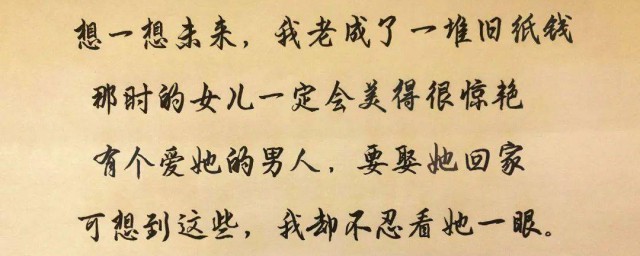 想一想未来，我老成了一堆旧纸钱
那时的女儿一定会美得很惊艳
有个爱她的男人，要娶她回家
可想到这些，我却不忍看她一眼。